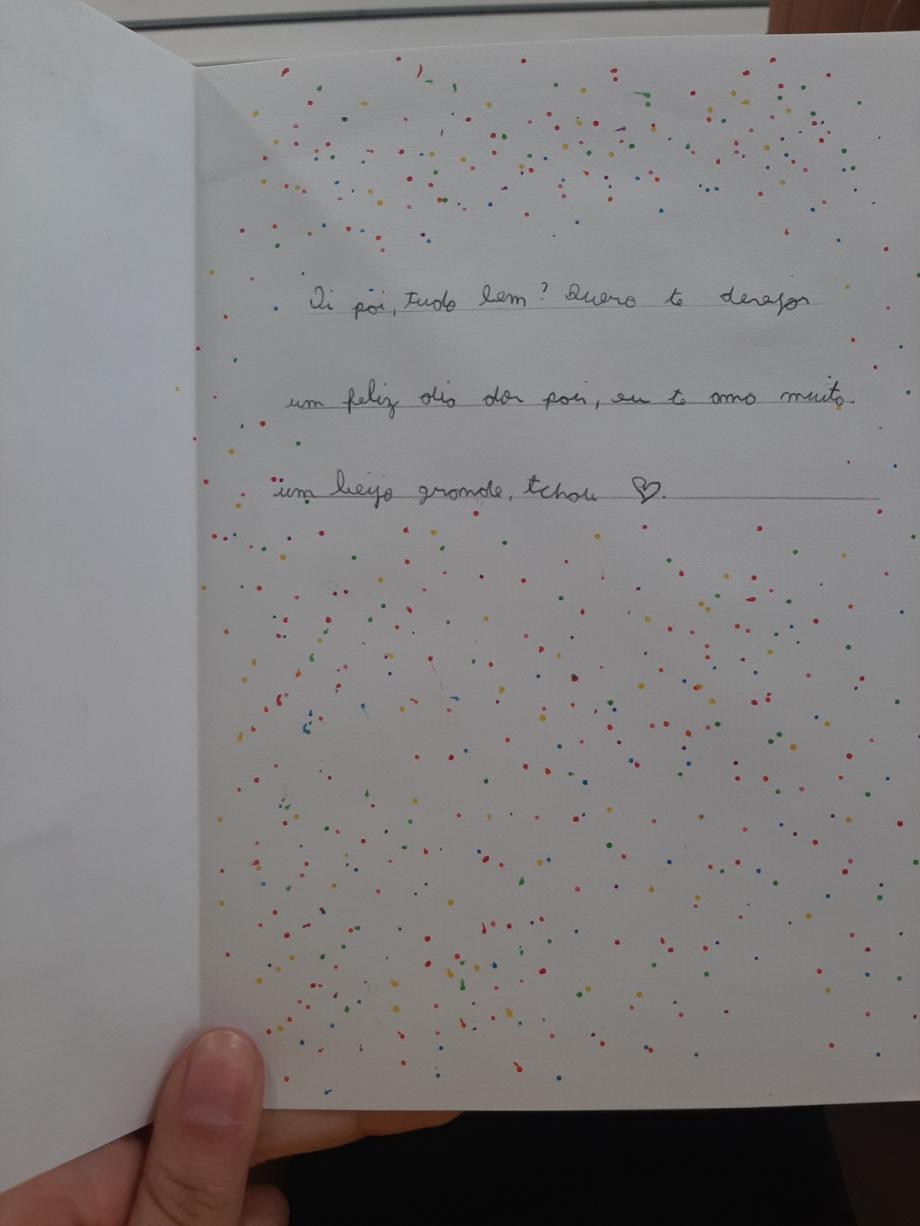 Oi pai, tudo bem? Quero te desejar
um feliz dia dos pais, eu te amo muito.
um beijo grande, tchau ♡.